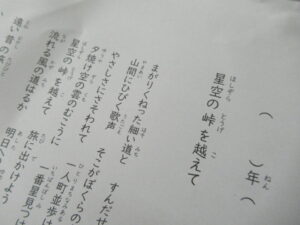 （　　）年（
星空の峠を越えて
まがりくねった細い道と
山間にひびく歌声
やさしさにさそわれて
夕焼け空の雲のむこうに
星空の峠を越えて
流れる風の道はるか
遠い昔の
すんだせ
そこがぼくらの
一人町並歩け
一番星見つけ
旅に出かけよう
明日へ